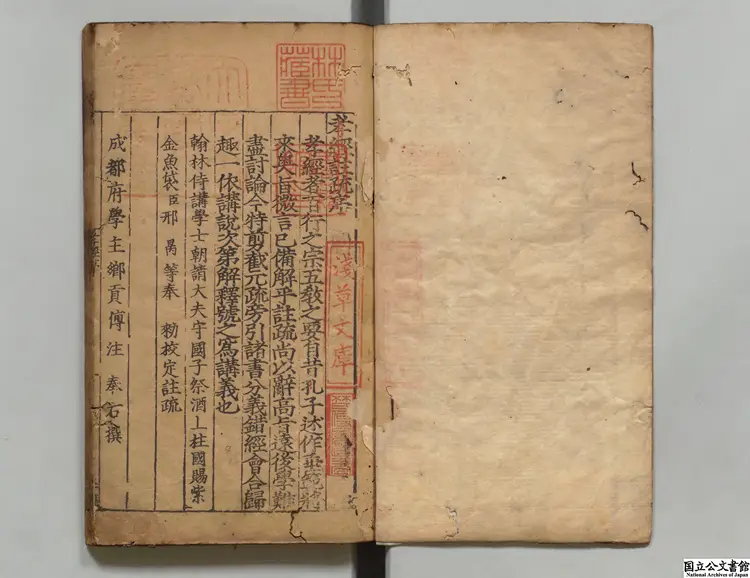 孝經註疏序
孝經者百行之宗五教之要自昔孔子述作垂範將
來奧旨微言已備解乎註疏尚以辭高旨遠後學難
盡討論今特剪截元疏旁引諸書分義錯經會合歸
趣一依講說次第解釋號之爲講義也
翰林侍講學士朝請大夫守國子祭酒上柱國賜紫
金魚袋臣邢昺等奉 勑挍定註疏
成都府學主鄉貢傅注 奉右撰
林氏藏書
淺草文庫
国立公文書館
National Archives of Japan